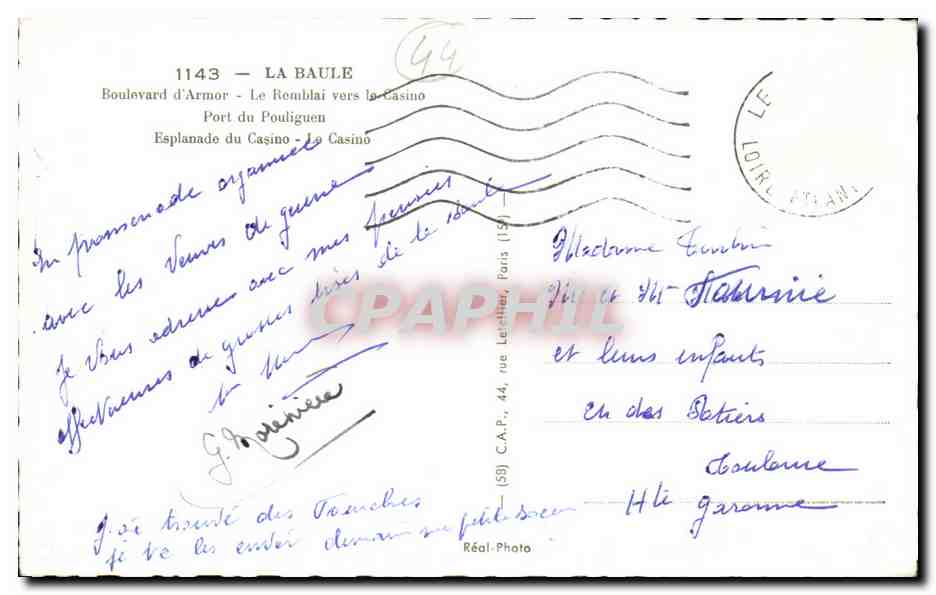 44
1143 — LA BAULE
Boulevard d'Armor - Le Remblai vers le Casino
Port du Pouliguen
Esplanade du Casino - Le Casino
LE
LOIRE ATLANT
En promenade organisée
avec les Veuves de guerre
Je vous adresse avec mes pensées
affectueuses de grosses bises de la Baule
G. Morinière
J'ai trouvé des Tranches
je te les enver demain petite
(5B) C.A.P., 44, rue Letellier, Paris (15e) —
Réal-Photo
Madame
et
et leurs enfants
ch des
Toulouse
Hte Garonne
CPAPHIL